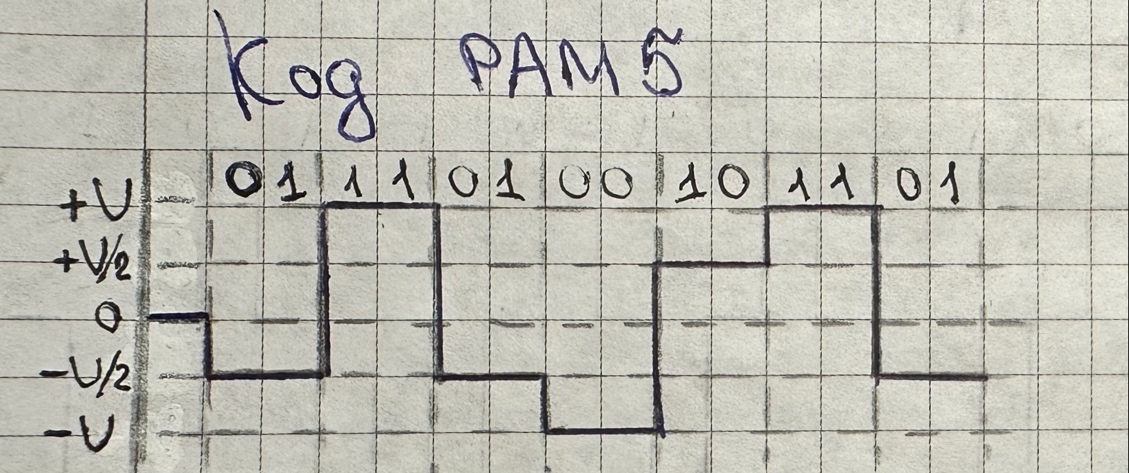 Код PAM 5
01 11 01 00 10 11 01
+U
+U/2
0
-U/2
-U